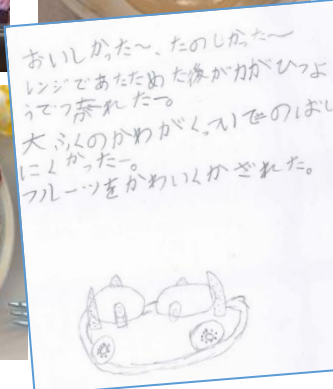 おいしかった〜、たのしかった〜
レンジであたためた後が力がひつよ
うでつ疲れたー。
大ふくのかわがくっいてのばし
にくかったー。
フルーツをかわいくかざれた。